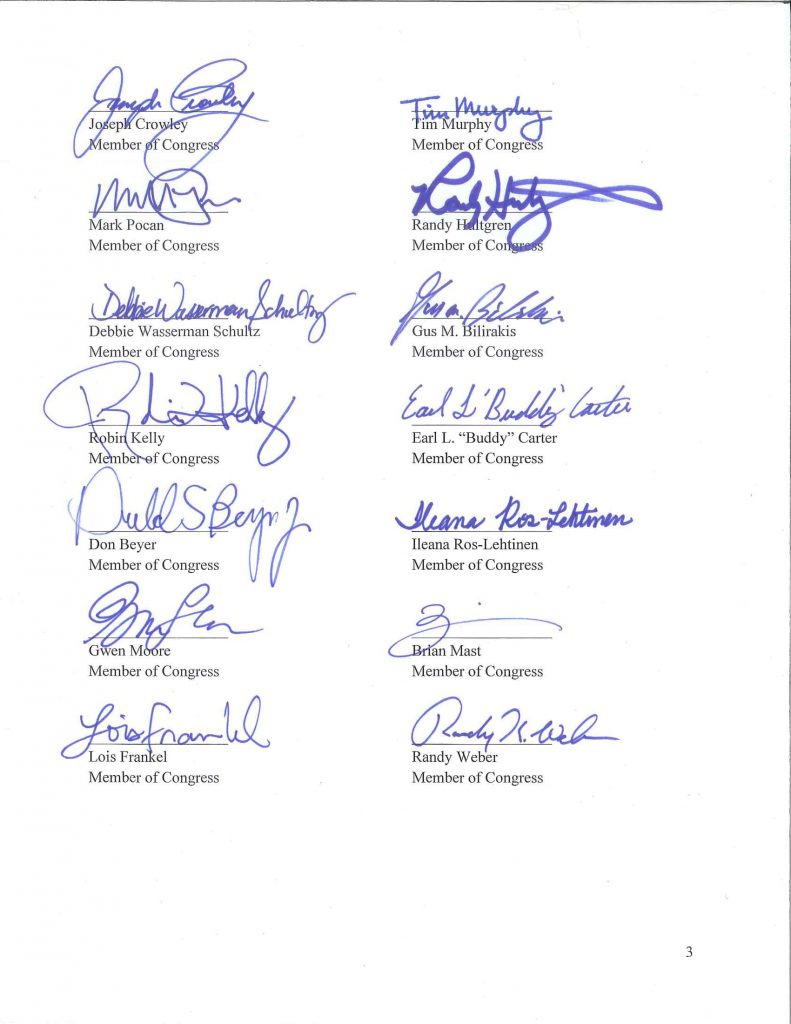 Joseph Crowley
Joseph Crowley
Member of Congress
Tim Murphy
Tim Murphy
Member of Congress
Mark Pocan
Member of Congress
Randy Hultgren
Member of Congress
Debbie Wasserman Schultz
Debbie Wasserman Schultz
Member of Congress
Gus M. Bilirakis
Member of Congress
Robin Kelly
Robin Kelly
Member of Congress
Earl L "Buddy" Carter
Earl L. “Buddy” Carter
Member of Congress
Donald S Beyer Jr
Don Beyer
Member of Congress
Ileana Ros-Lehtinen
Ileana Ros-Lehtinen
Member of Congress
Gwen Moore
Member of Congress
Brian Mast
Member of Congress
Lois Frankel
Lois Frankel
Member of Congress
Randy K. Weber
Randy Weber
Member of Congress
3